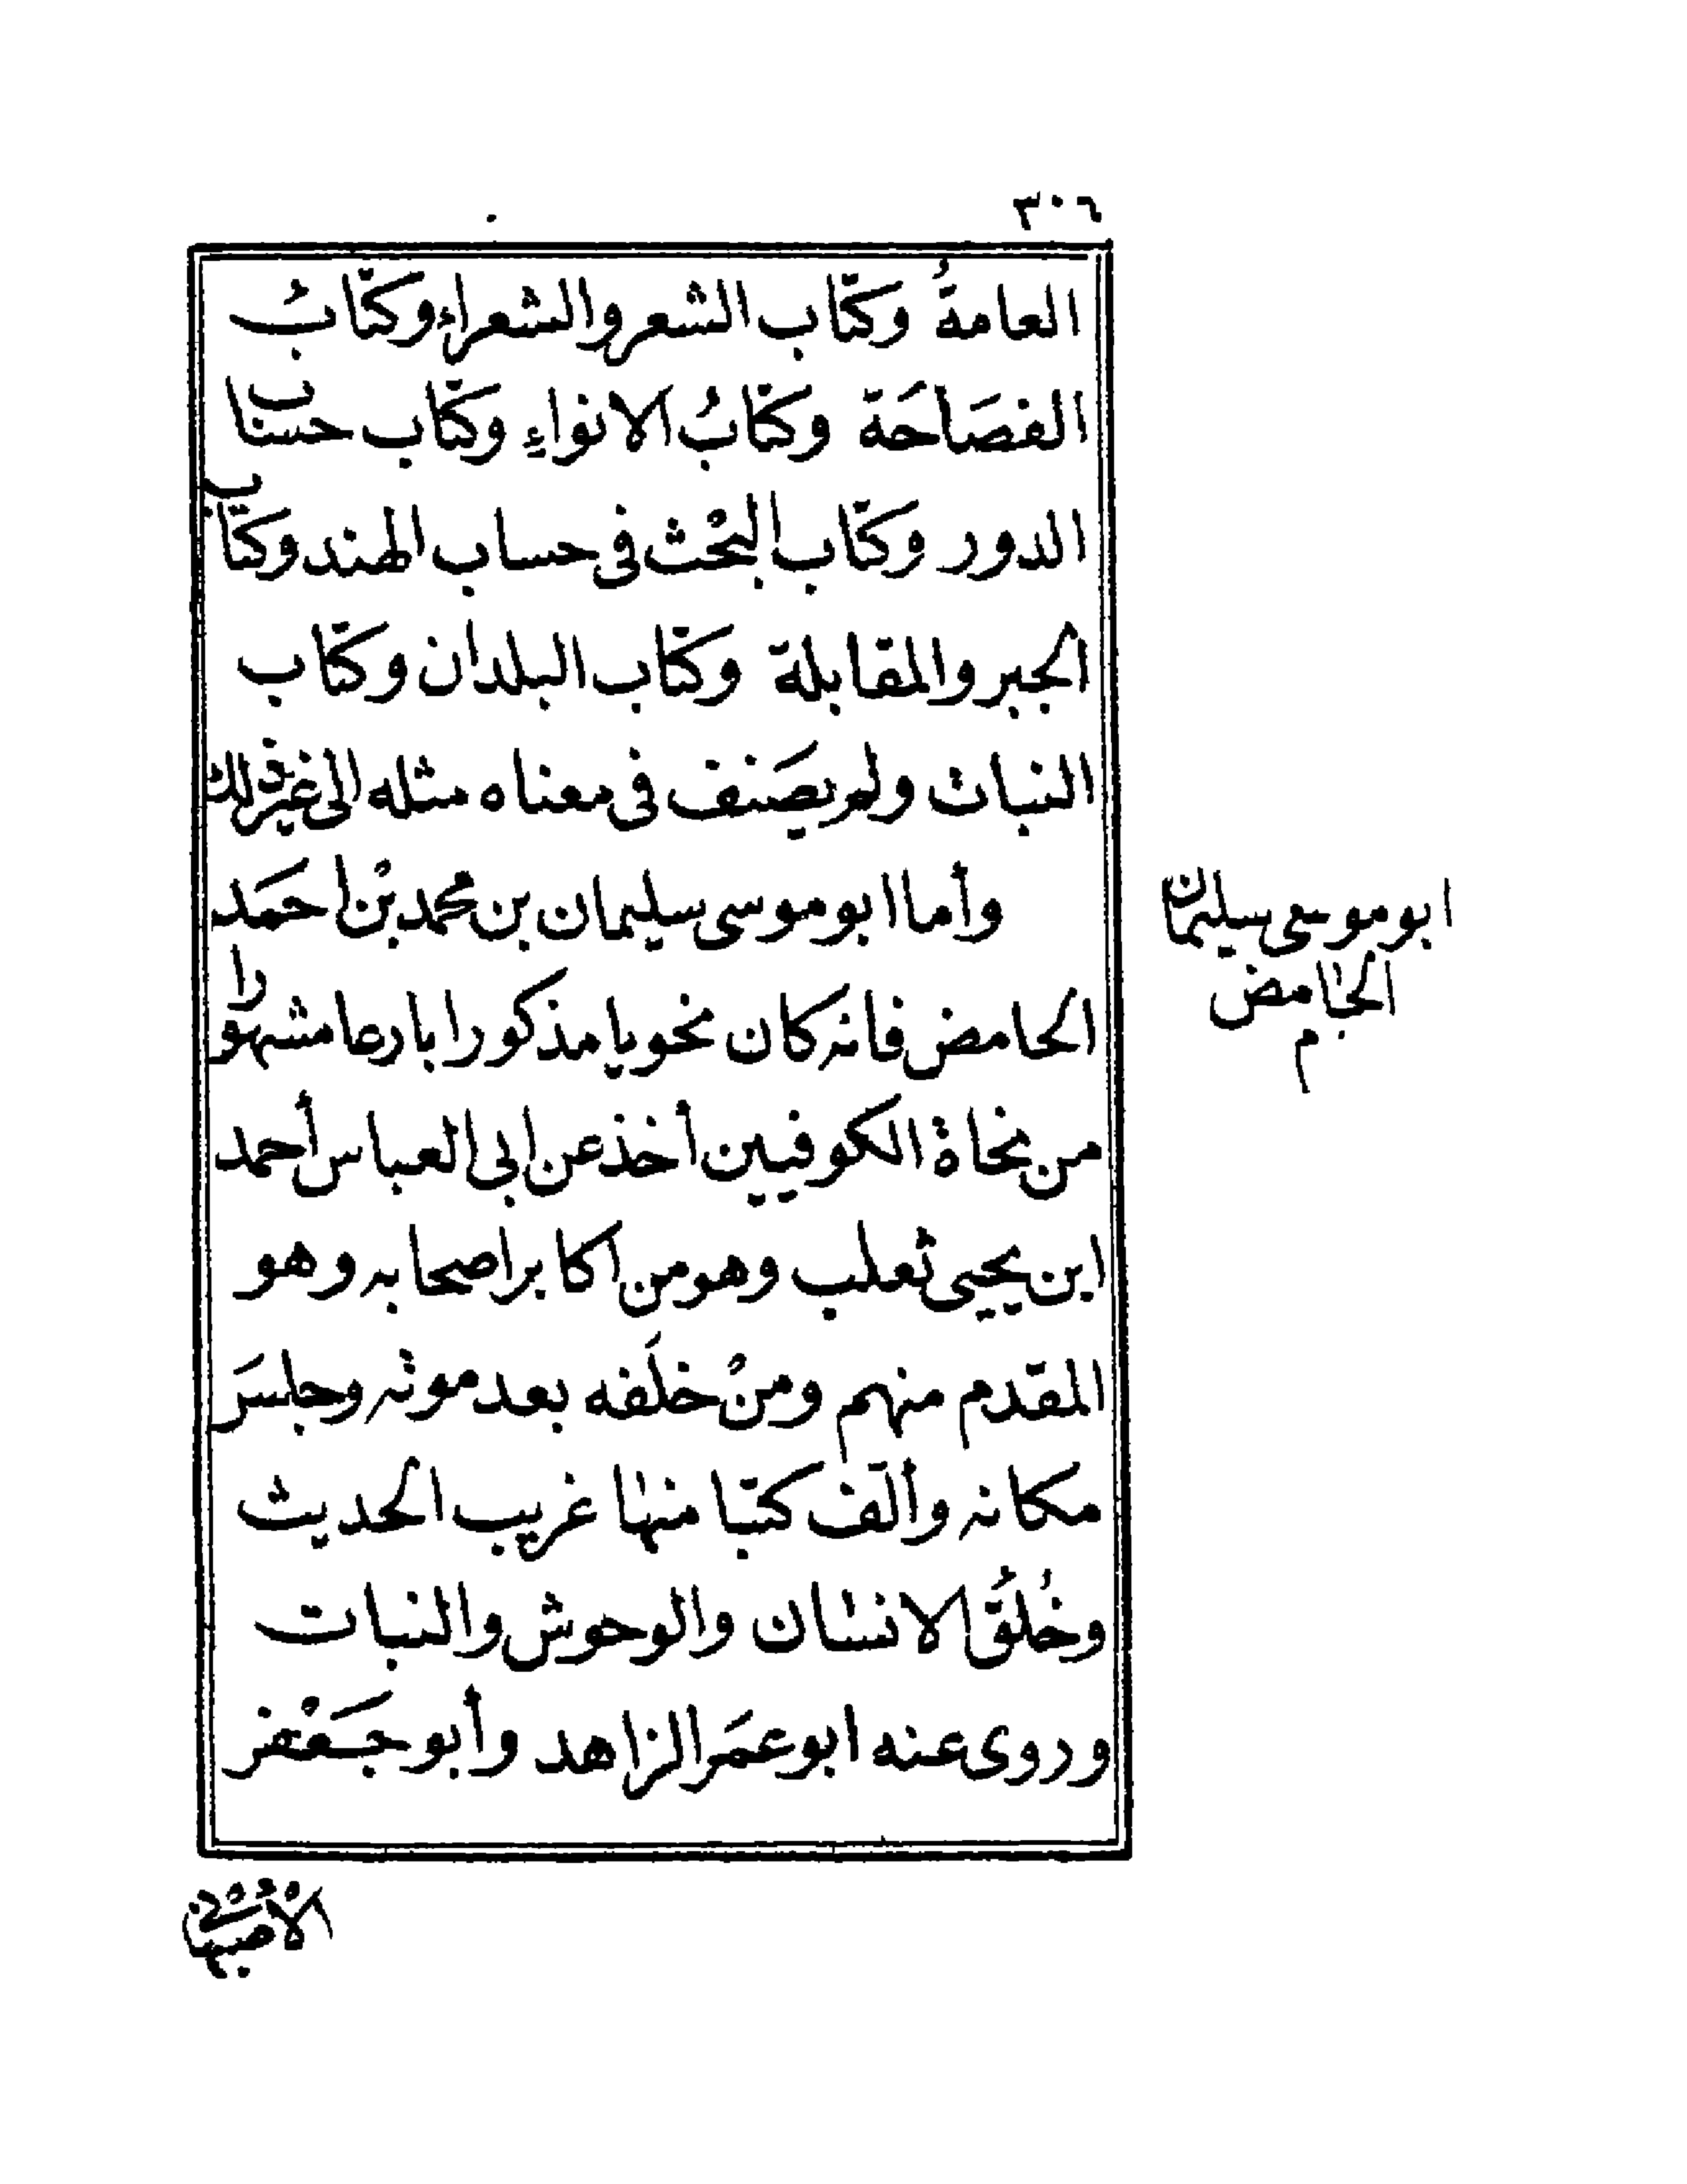 ٣٠٦
العامةُ وكتاب الشعر والشعراء وكتابُ
الفصَاحَة وكتابُ الانواءِ وكتاب حساب
الدور وكتاب البحْث فى حساب الهند وكتاب
الجبر والمقابلة وكتاب البلدان وكتاب
النبات ولم يصَنف فى معناه مثله الى غير ذلك
وأما ابو موسى سليمان بن محمد بْن احمَد
الحامض فانه كان نحويا مذكورا بارعا مشهورا
من نحاة الكوفيين أخذ عن ابى العباس أحمد
ابن يحيى ثعلب وهو من اكابر اصحابه وهو
المقدم منهم ومنْ خلَفه بعد موته وجلسَ
مكانه وألف كتبا منها غريب الحديث
وخُلقُ الانسان والوحوش والنبات
وروى عنه ابو عمَر الزاهد وأبو جَعْفر
ابو موسى سليمان
الحامض
م
الأصبهانى